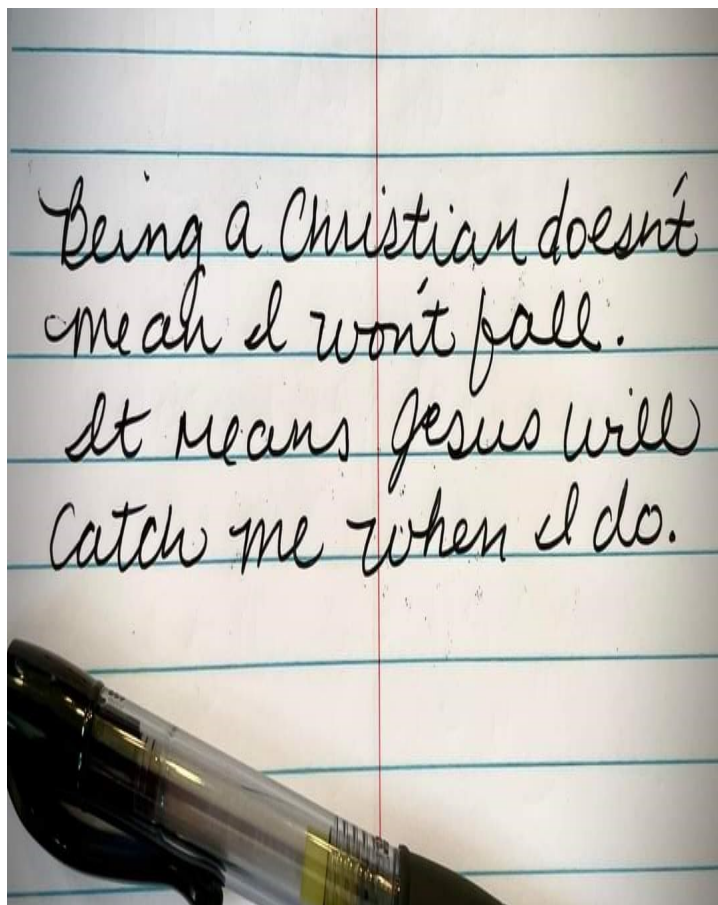 Being a Christian doesn't
mean I won't fall.
It means Jesus will
Catch me when I do.